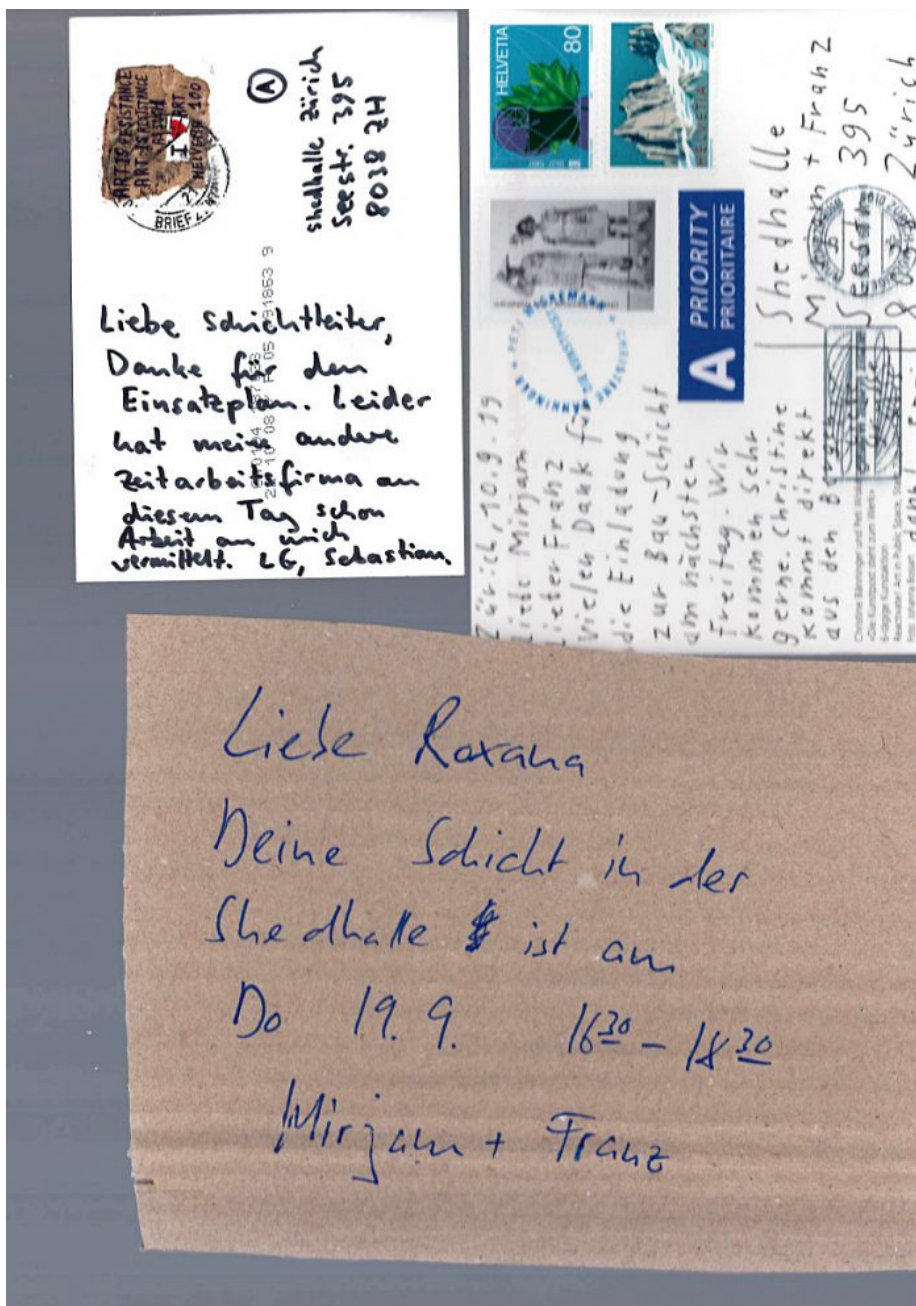 ART IS RESISTANCE
ART IS RESISTANCE
I ART
HELVETIA 100
BRIEFZ
A
shedhalle Zürich
Seestr. 395
8038 ZH
Liebe Schichtleiter,
Danke für den
Einsatzplan. Leider
hat meine andere
Zeitarbeitsfirma an
diesem Tag schon
Arbeit an mich
vermittelt. LG, Sebastian.
HELVETIA 80
HELVETIA 20
A PRIORITY
PRIORITAIRE
Shedhalle
Mirjam + Franz
Seestr. 395
Zürich
Zürich, 10.9.19
Liebe Mirjam
Lieber Franz
Vielen Dank für
die Einladung
zur Bau-Schicht
am nächsten
Freitag. Wir
kommen sehr
gerne. Christine
kommt direkt
aus den
Liebe Roxana
Deine Schicht in der
Shedhalle ist am
Do 19. 9. 16 30 – 18 30
Mirjam + Franz